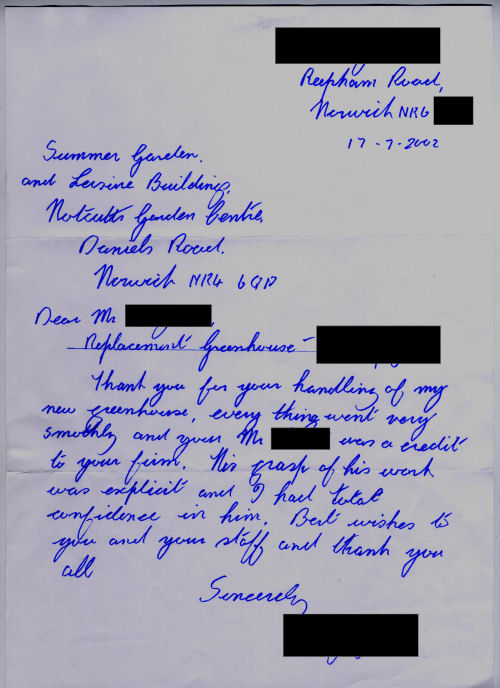 Reepham Road,
Norwich NR6
17-7-2002
Summer Garden.
and Leisure Buildings,
Notcutts Garden Centre,
Daniels Road.
Norwich NR4 6QP
Dear Mr
Replacement Greenhouse -
Thank you for your handling of my
new greenhouse, every thing went very
smoothly and your Mr was a credit
to your firm. His grasp of his work
was explicit and I had total
confidence in him. Best wishes to
you and your staff and thank you
all
Sincerely